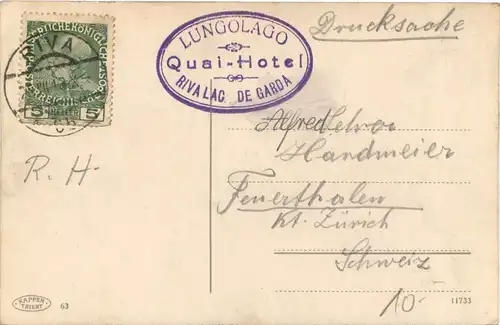 Drucksache
RIVA
5 5
LUNGOLAGO
Quai-Hotel
RIVA LAC DE GARDA
Alfred
Handmeier
Feuerthalen
Kt. Zürich
Schweiz
R. H.
10.-
KAPPER
TRIENT
63
11733